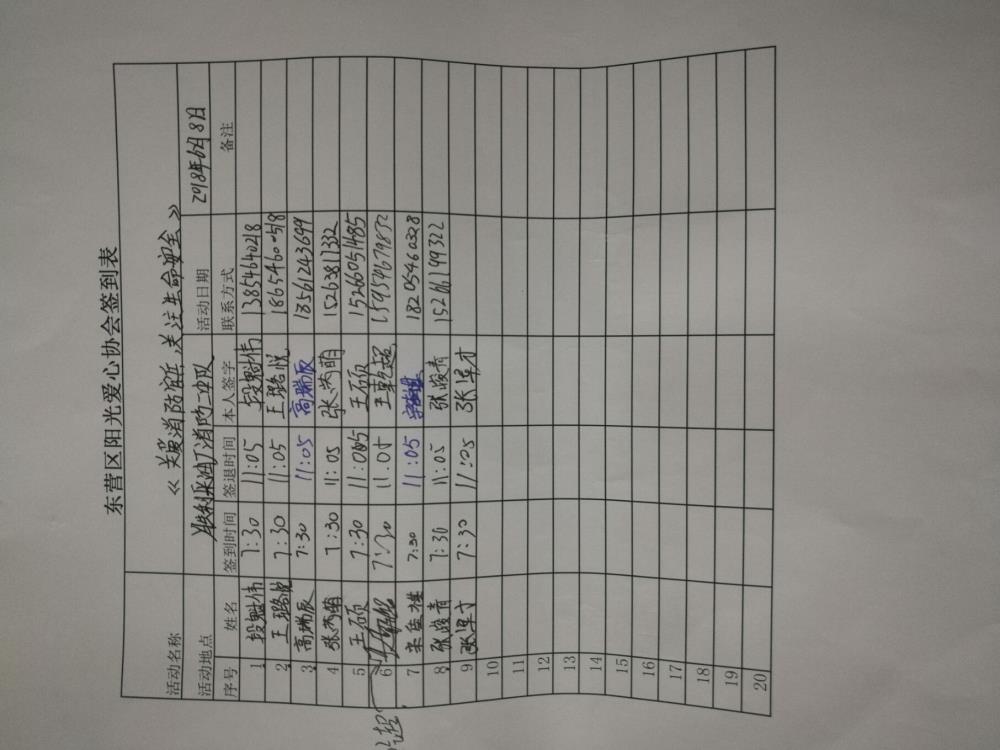 东营区阳光爱心协会签到表
活动名称 《关爱消防官兵，关注生命安全》
活动地点 胜利采油厂消防二中队 活动日期 2018年6月8日
序号 姓名 签到时间 签退时间 本人签字 联系方式 备注
1 段魁伟 7:30 11:05 段魁伟 13854640218
2 王璐悦 7:30 11:05 王璐悦 18654600518
3 高瑞辰 7:30 11:05 高瑞辰 13561243699
4 张芮萌 7:30 11:05 张芮萌 15263811332
5 王硕 7:30 11:05 王硕 15266051485
6 7:30 11:05 15954679832
7 7:30 11:05 18205460328
8 张峻青 7:30 11:05 张峻青 15266199322
9 7:30 11:05
10
11
12
13
14
15
16
17
18
19
20